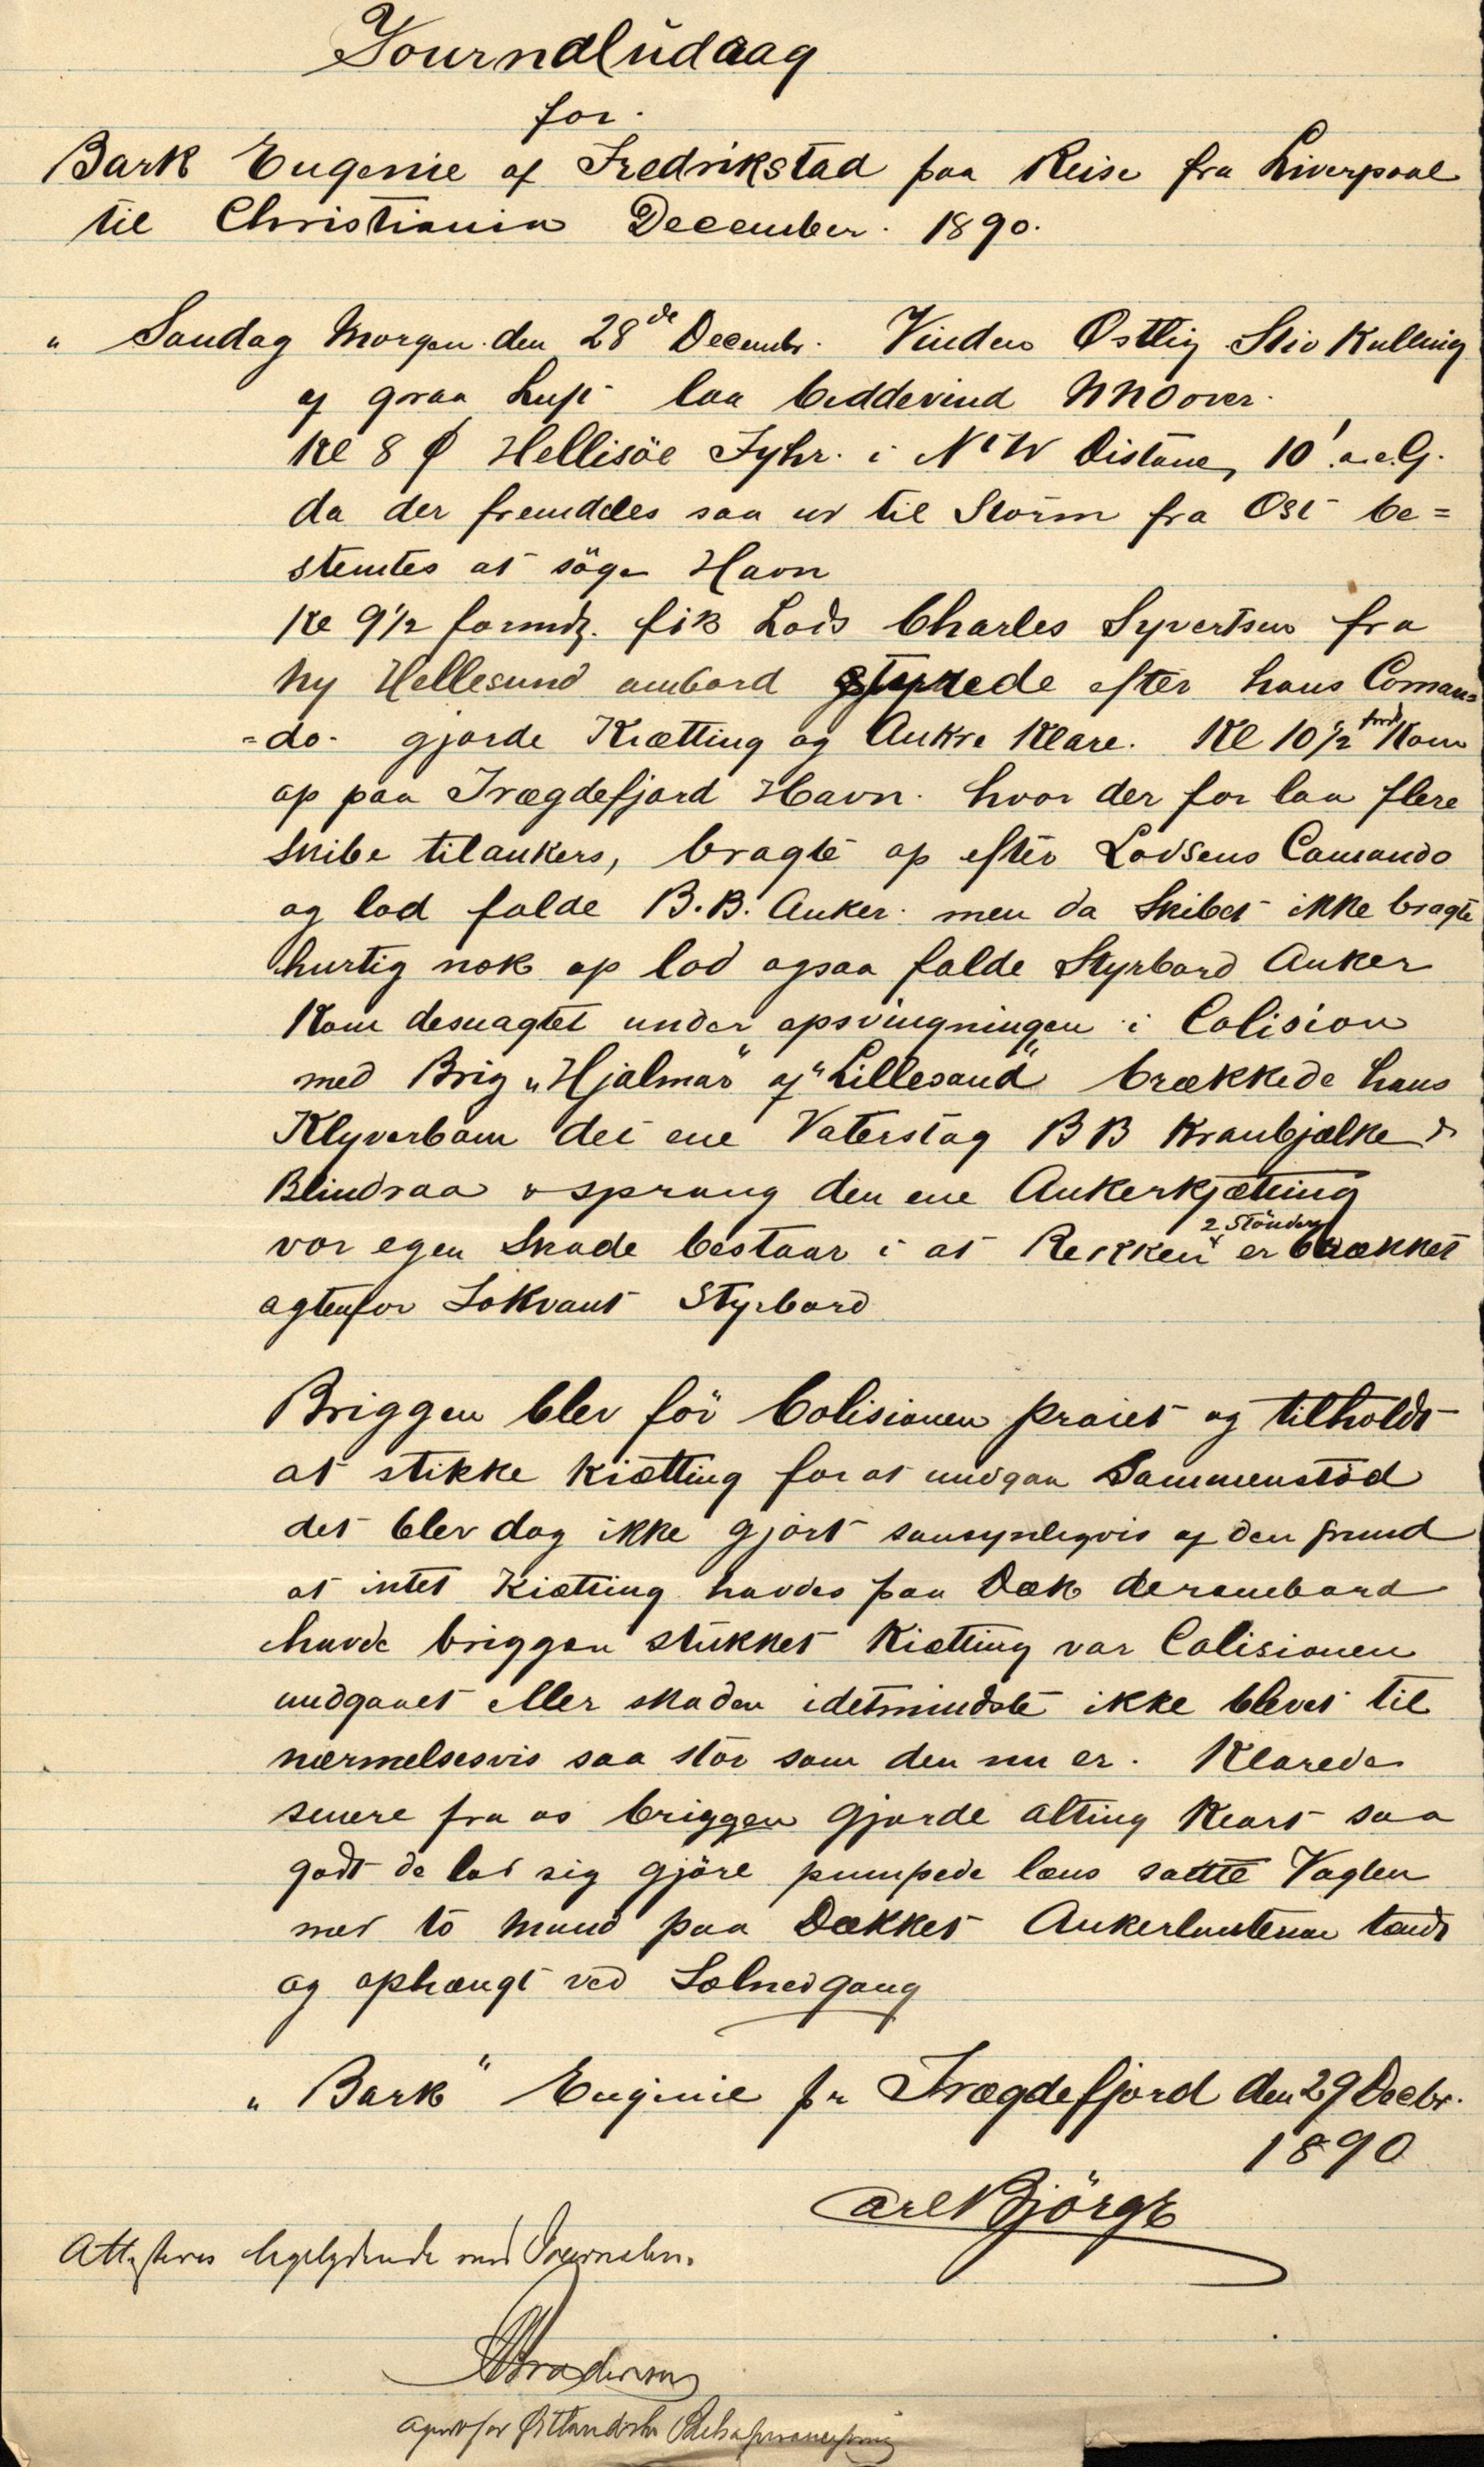 Journaludaag
for
Bark Eugenie af Fredrikstad paa Reise fra Liverpool
til Christiania December. 1890.
" Søndag Morgen den 28de Decembr. Vinden Østlig Stiv Kulling
og graa Luft laa biddevind NNO over.
Kl 8 ϕ Hellisöe Fyhr. i NtW Distance 10' a.e.G.
da der fremdeles saa ud til Storm fra Ost be=
stemtes at söge Havn
Kl 9½ formdg. fik Lods Charles Syvertsen fra
Ny Hellesund ombord styrede efter hans Coman=
=do. gjorde Kætting og Ankre Klare. Kl 10½ fmd Kom
op paa Trægdefjord Havn. hvor der for laa flere
Skibe tilankers, bragte op efter Lodsens Comando
og lod falde B.B. Anker. men da Skibet ikke bragte
hurtig nok op lod ogsaa falde Styrbord Anker
Kom desuagtet under opsvingningen i Colision
med Brig „Hjalmar" af "Lillesand" brækkede hans
Klyverbom det ene Vaterstag BB Kranbjælke &
Blindraa & sprang den ene Ankerkjætting
vor egen Skade bestaar i at Rekken 2 Stönder er brækket
agtenfor Fokvant Styrbord
Briggen blev för Colisionen praiet og tilholdt
at stikke kiætting for at undgaa Sammenstöd
det blev dog ikke gjort sansynligvis af den grund
at intet Kiætting havdes paa Dæk derombord
havde briggen stükket Kiætting var Colisionen
undgaaet eller skaden idetmindste ikke blevet til
nærmelsesvis saa stor som den nu er. Klarede
senere fra os briggen gjorde alting Klart saa
godt de lod sig gjöre pumpede læns satte Vagten
med to Mand paa Dækket Ankerlanterne tændt
og ophængt ved Solnedgang
„ Bark " Eugenie pr Trægdefjord den 29 Decbr.
1890
Carl Björge
Attesteres ligelydende med Journalen.
Agent for